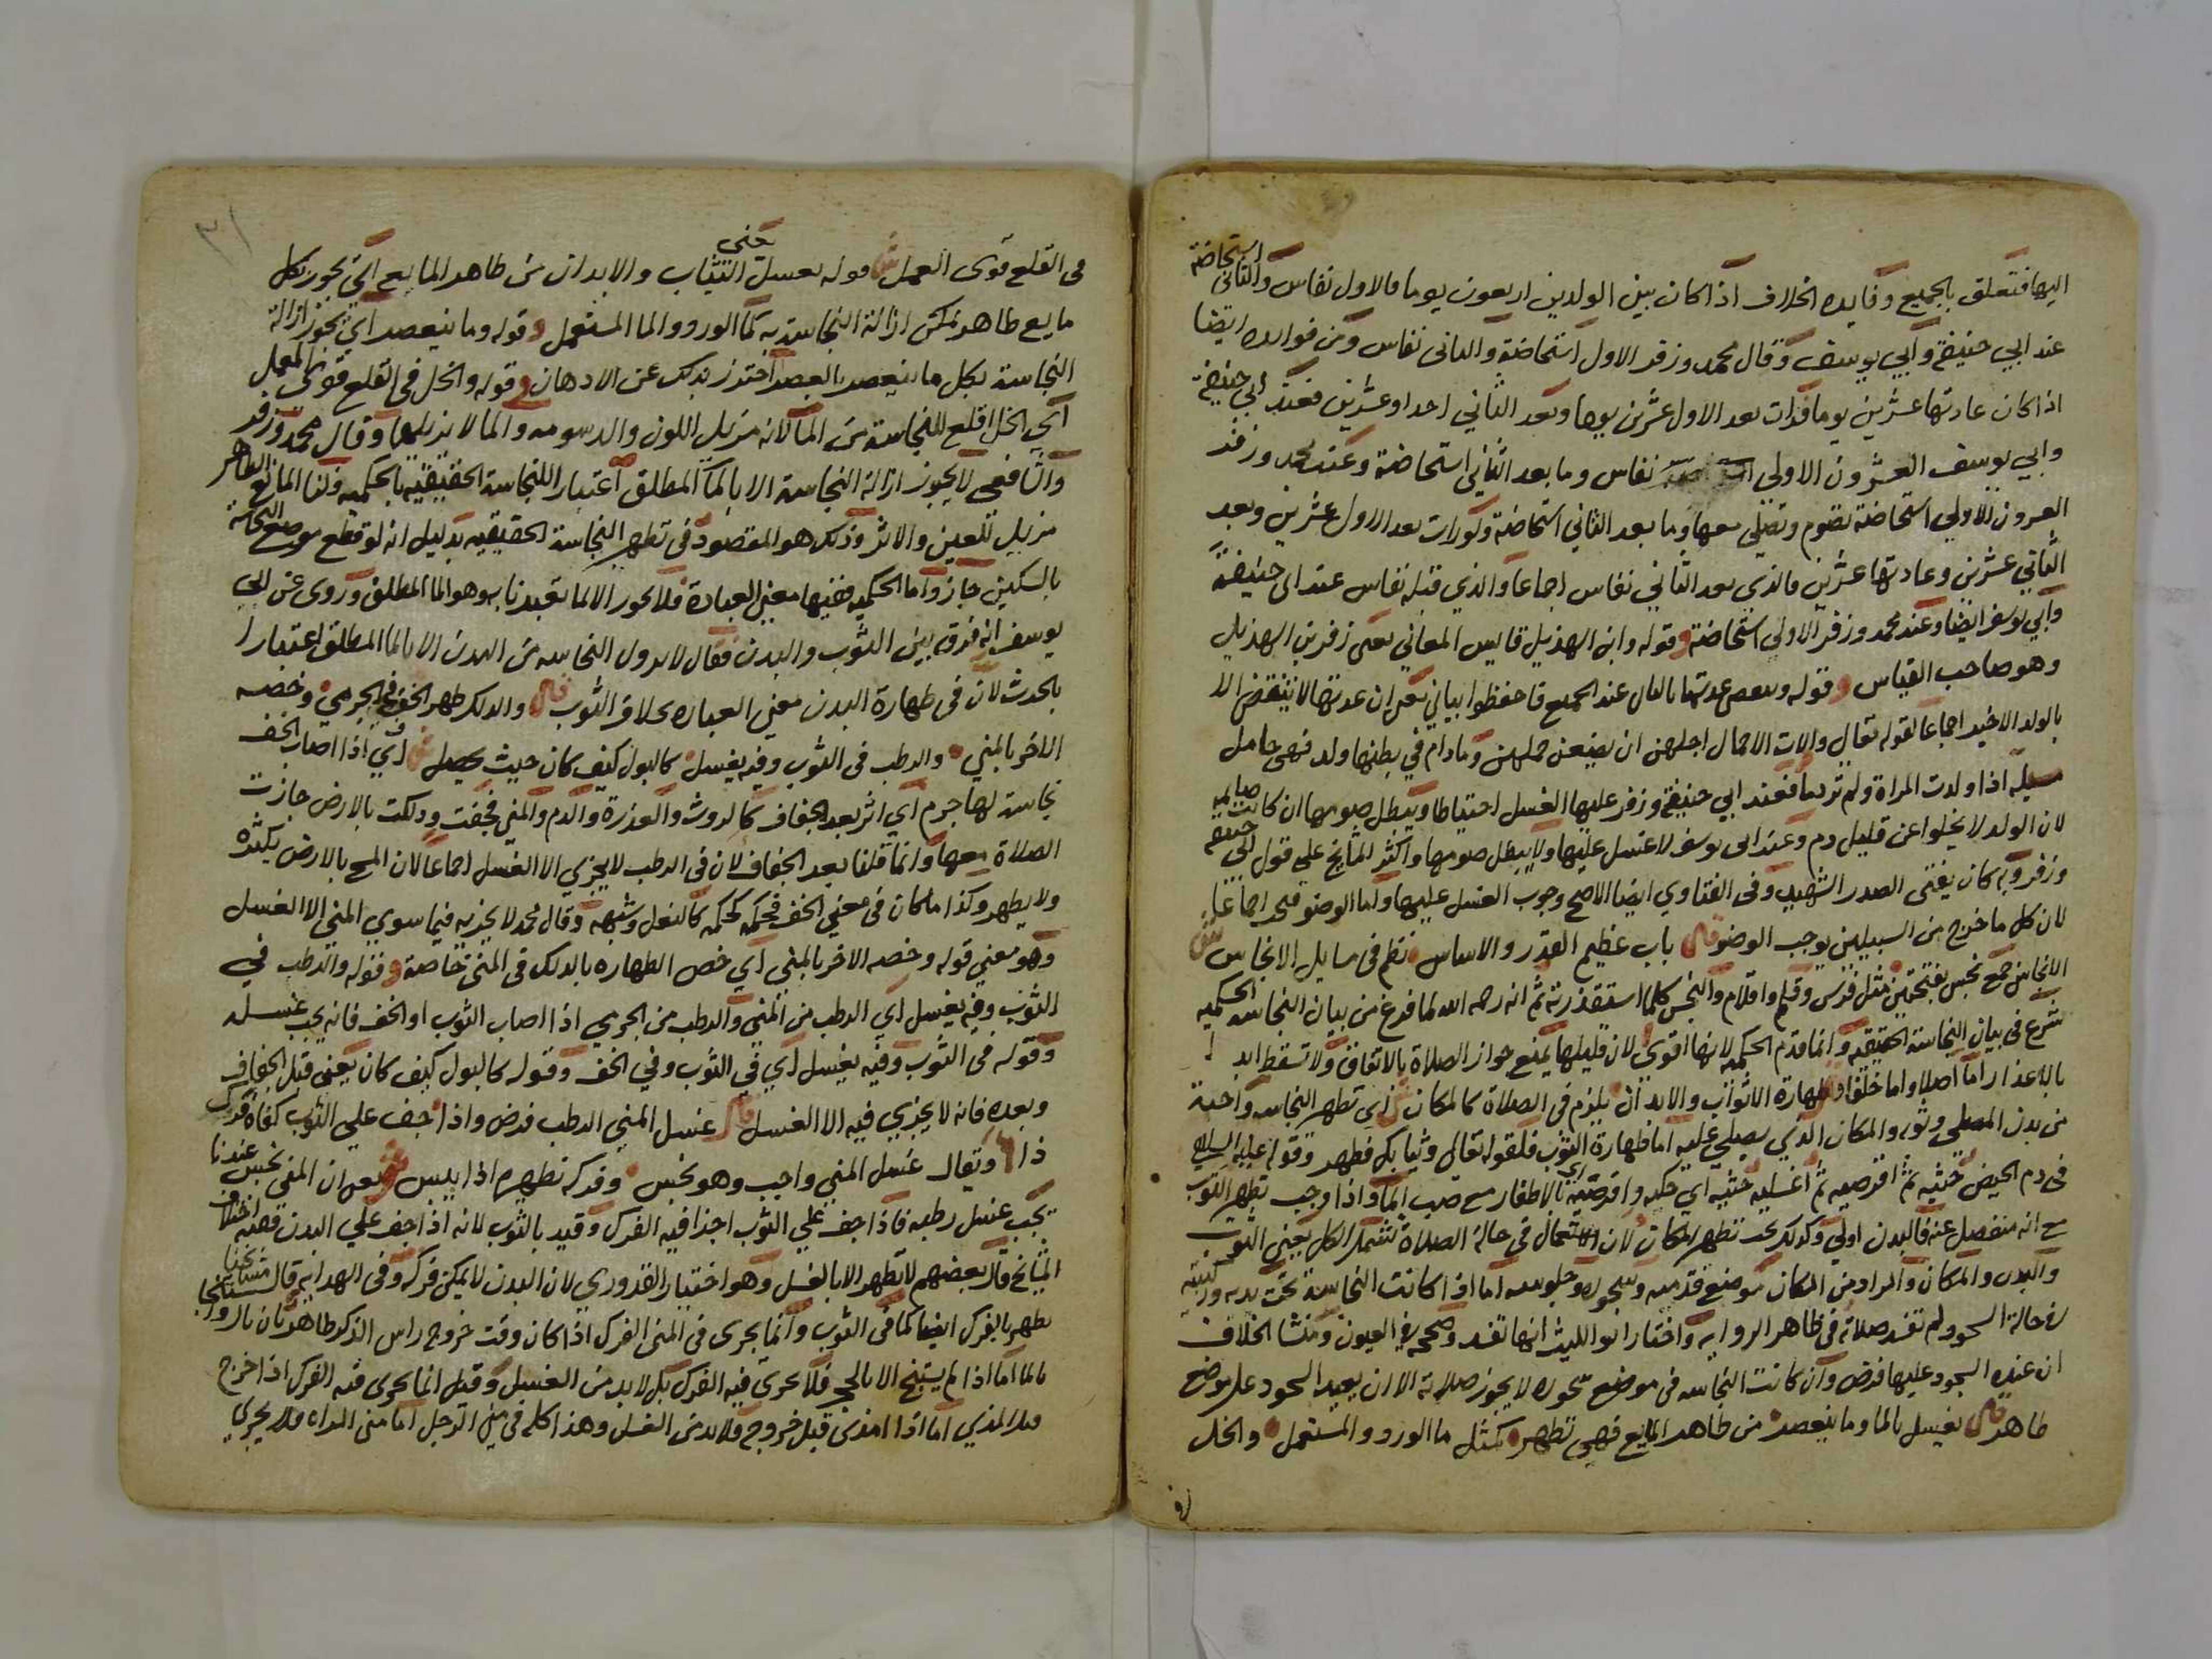 اليها فتعلق بالجميع وفايده الخلاف اذا كان بين الولدين اربعون يوما فالاول نفاس والثاني استحاضة
عند ابي حنيفة وابي يوسف وقال محمد وزفر الاول استحاضة والثاني نفاس ومن فوايده ايضا
اذا كان عادتها عشرين يوما فرات بعد الاول عشرين يوما وبعد الثاني احدا وعشرين فعند ابي حنيفة
وابي يوسف العشرون الاولي نفاس وما بعد الثاني استحاضة وعند محمد وزفر
العشرون الاولي استحاضة تصوم وتصلي معها وما بعد الثاني استحاضة ولو رات بعد الاول عشرين وبعد
الثاني عشرين وعادتها عشرين فالذي بعد الثاني نفاس اجماعا والذي قبله نفاس عند ابي حنيفة
وابي يوسف ايضا وعند محمد وزفر الاولي استحاضة وقوله وابن الهذيل قايس المعاني يعني زفر بن الهذيل
وهو صاحب القياس وقوله وتنقضي عدتها بالثاني عند الجميع فاحفظوا بياني يعني ان عدتها لا تنقضي الا
بالولد الاخير اجماعا لقوله تعالي واولات الاحمال اجلهن ان يضعن حملهن وما دام في بطنها ولد فهي حامل
مسيلة اذا ولدت المراة ولم تر دما فعند ابي حنيفة وزفر عليها الغسل احتياطا ويبطل صومها ان كانت صايمة
لان الولد لا يخلوا عن قليل دم وعند ابي يوسف لا غسل عليها ولا يبطل صومها واكثر المشايخ علي قول ابي حنيفة
وزفر وبه كان يفتي الصدر الشهيد وفي الفتاوي ايضا الاصح وجوب الغسل عليها واما الوضو فيجب اجماعا
لان كل ما خرج من السبيلين يوجب الوضو قال باب عظيم القدر والاساس نظم في مسايل الانجاس ش
الانجاس جمع نجس بفتحتين مثل فرس وقلم واقلام والنجس كلما استقذرته ثم انه رحمه الله لما فرغ من بيان النجاسة الحكمية
شرع في بيان النجاسة الحقيقية وانما قدم الحكمية لانها اقوي لان قليلها يمنع جواز الصلاة بالاتفاق ولا تسقط ابدا
بالاعذار اما اصلا واما خلفا وطهارة الاثواب والابدان يلزم في الصلاة كالمكان ش اي تطهير النجاسة واجبة
من بدن المصلي وثوبه والمكان الذي يصلي عليه اما طهارة الثوب فلقوله تعالي وثيابك فطهر وقوله عليه السلام
في دم الحيض حتيه ثم اقرصيه ثم اغسليه حتيه اي حكيه واقرصيه اي بالاظفار مع صب الما واذا وجب تطهير الثوب
مع انه منفصل عنه فالبدن اولي وكذلك يجب تطهير المكان لان الاستعمال في حالة الصلاة تشتمل الكل يعني الثوب
والبدن والمكان والمراد من المكان موضع قدميه وسجوده وجلوسه اما اذا كانت النجاسة تحت يديه وركبتيه
في حالة السجود لم تفسد صلاته في ظاهر الرواية واختار ابو الليث انها تفسد وصححه في العيون ومنشا الخلاف
ان عنده السجود عليها فرض وان كانت النجاسة في موضع سجوده لا يجوز صلاته الا ان يعيد السجود علي موضع
طاهر قال يغسل بالما وما ينعصر من طاهر المايع فهي تطهر كمثل ما الورد والمستعمل والخل
٣١
في القلع قوي العمل ش قوله يغسل يعني الثياب والابدان من طاهر المايع اي يجوز بكل
مايع طاهر يمكن ازالة النجاسة به كما الورد والما المستعمل وقوله وما ينعصر اي يجوز ازالة
النجاسة بكل ما ينعصر بالعصر احترز بذلك عن الادهان وقوله والخل في القلع قوي العمل
اي الخل اقلع للنجاسة من الما لانه مزيل اللون والدسومة والما لا يزيلهما وقال محمد وزفر
والشافعي لا يجوز ازالة النجاسة الا بالما المطلق اعتبارا للنجاسة الحقيقية بالحكمية ولنا المايع الطاهر
مزيل للعين والاثر وذلك هو المقصود في تطهير النجاسة الحقيقية بدليل انه لو قطع موضع النجاسة
بالسكين جاز واما الحكمية ففيها معني العبادة فلا يجوز الا بما تعبدنا به وهو الما المطلق وروي عن ابي
يوسف انه فرق بين الثوب والبدن فقال لا تزول النجاسة من البدن الا بالما المطلق اعتبارا
بالحدث لان في طهارة البدن معني العبادة بخلاف الثوب قال والدلك طهر الخف في الجرمي وخصه
الاخر بالمني والرطب في الثوب وفيه يغسل كالبول كيف كان حيث يحصل ش اي اذا اصاب الخف
نجاسة لها جرم اي اثر بعد الجفاف كالروث والعذرة والدم والمني فجفت ودلكت بالارض جازت
الصلاة معها وانما قلنا بعد الجفاف لان في الرطب لا يجزي الا الغسل اجماعا لان المسح بالارض يكثره
ولا يطهر وكذا ما كان في معني الخف فحكمه كحكمه كالنعل وشبهه وقال محمد لا يجزيه فيما سوي المني الا الغسل
وهو معني قوله وخصه الاخر بالمني اي خص الطهارة بالدلك في المني خاصة وقوله والرطب في
الثوب وفيه يغسل اي الرطب من المني والرطب من الجرمي اذا اصاب الثوب او الخف فانه يجب غسله
وقوله في الثوب وفيه يغسل اي في الثوب وفي الخف وقوله كالبول كيف كان يعني قبل الجفاف
وبعده فانه لا يجزي فيه الا الغسل قال غسل المني الرطب فرض واذا جف علي الثوب كفاه فرك
ذا ويقال غسل المني واجب وهو نجس وفركه تطهيره اذا يبس ش يعني ان المني نجس عندنا
يجب غسل رطبه فاذا جف علي الثوب اجزا فيه الفرك وقيد بالثوب لانه اذا جف علي البدن ففيه اختلاف
المشايخ قال بعضهم لا يطهر الا بالغسل وهو اختيار القدوري لان البدن لا يمكن فركه وفي الهداية قال مشايخنا
يطهر بالفرك ايضا كما في الثوب وانما يجزي في المني الفرك اذا كان وقت خروج راس الذكر طاهرا بان بال واستنجا
بالما اما اذا لم يستنج الا بالحجر فلا يجزي فيه الفرك بل لا بد من الغسل وقيل انما يجزي فيه الفرك اذا خرج
قبل المذي اما اذا امذي قبل خروجه فلا بد من الغسل وهذا كله في مني الرجل اما مني المراة فلا يجزي